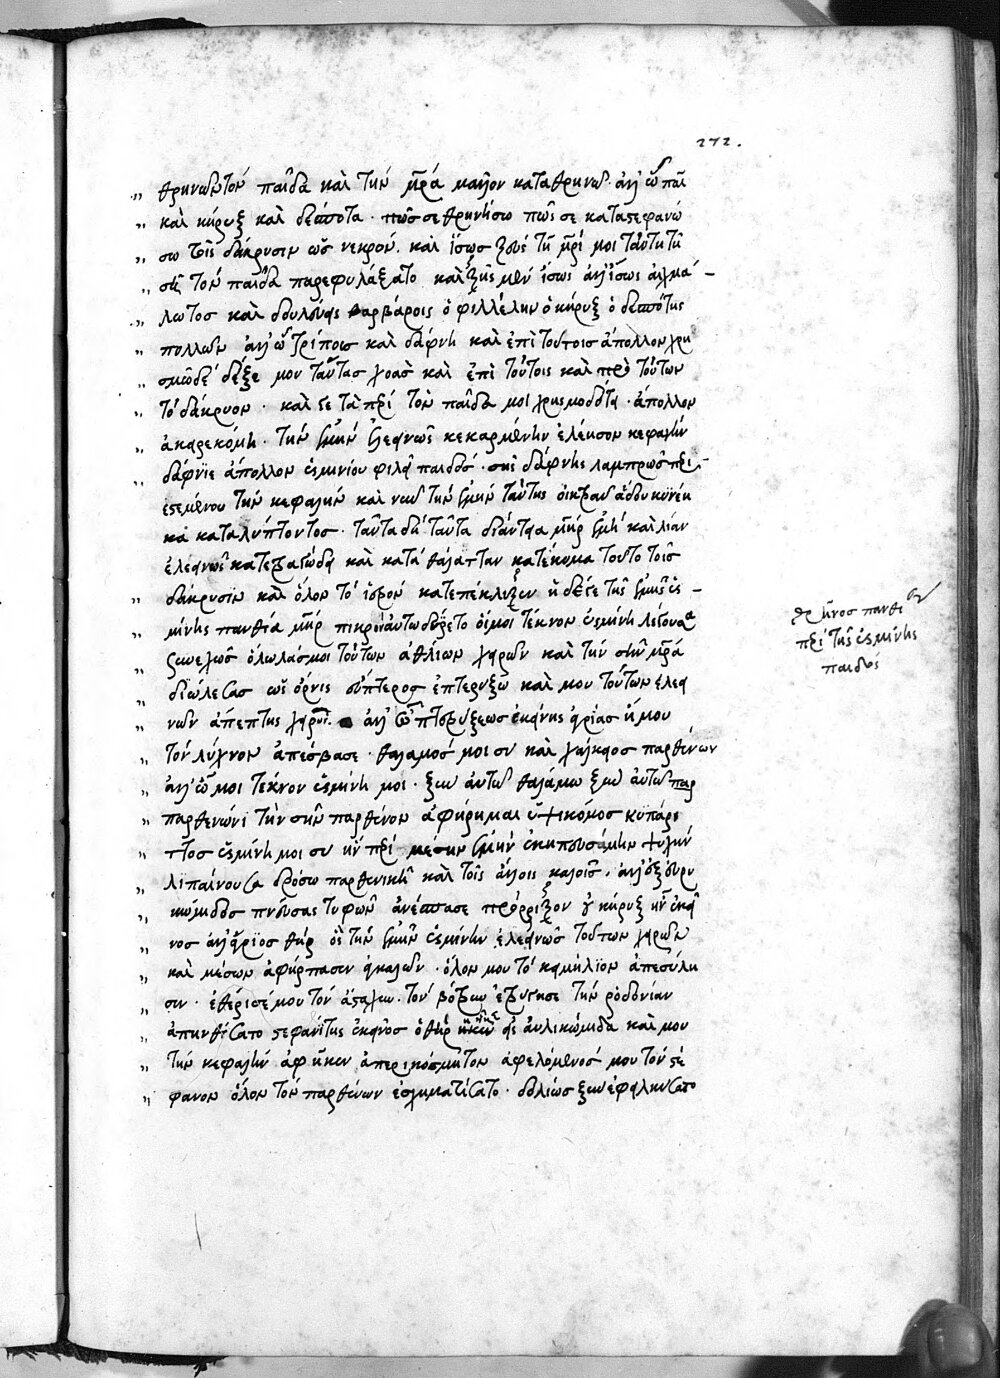 272.
θρηνῶ τὸν παῖδα καὶ τὴν μρά μᾶλλον καταθρηνῶ. ἀλλ' ὦ παῖ
καὶ κήρυξ καὶ δέσποτα. πῶς σε θρηνήσω πῶς σε καταστεφανώ
σω τοῖς δάκρυσιν ὡς νεκρόν. καὶ ἴσως Ζεύς τῇ μρί μοι ταύτῃ τῇ
σῇ τὸν παῖδα παρεφυλάξατο καὶ ζῇς μὲν ἴσως ἀλλ' ἴσως αἰχμά
λωτος καὶ δουλεύεις βαρβάροις ὁ φιλέλλην ὁ κήρυξ ὁ δεσπότης
πολλῶν ἀλλ' ὦ τρίπους καὶ δάφνη καὶ ἐπὶ τούτοις ἀπόλλον χρη
σμῳδέ δέξαι μου ταύτας χοὰς καὶ ἐπὶ τούτοις καὶ πρὸ τούτων
τὸ δάκρυον. καὶ τὰ περὶ τὸν παῖδά μοι χρησμοδότει. ἄπολλον
ἀκειρεκόμη. τὴν ἐμὴν ἐλεεινῶς κεκαρμένην ἐλέησον κεφαλήν
δαφναῖε ἄπολλον ὑσμινίου φίλει παιδός. σῆς δάφνης λαμπρῶς περι
εστεμμένου τὴν κεφαλὴν καὶ νῦν τὴν ἐμὴν ταύτης οἰκτρῶς ἄδου κυνέῃ
κατακαλύπτοντος. ταῦτα δὴ ταῦτα διάντεια μήρ ἐμὴ καὶ λίαν
ἐλεεινῶς κατετραγῴδει καὶ κατὰ θάλατταν κατέκλυζε τοῦτο τοῖς
δάκρυσιν καὶ ὅλον τὸ ἱερὸν κατεπέκλυζεν ἡ δέ γε τῆς ἐμῆς ὑσ
μίνης πανθία μήρ πικρὸν ἀντωδύρετο οἴμοι τέκνον ὑσμίνη λέγουσα
συνεχῶς ὄλωλάς μοι τούτων ἀθλίων χειρῶν καὶ τὴν σὴν μρά
διώλεσας ὡς ὄρνις εὔπτερος ἐπτερύξω καί μου τούτων ἐλεει
νῶν ἀπέπτης χειρῶν. ἀλλ' ὢ πτερύξεως ἐκείνης ἀγρίας ἥ μου
τὸν λύχνον ἀπέσβεσε. θάλαμός μοι σύ καὶ χάλκεος παρθένων
ἀλλ' ὤμοι τέκνον ὑσμίνη μοι. ξὺν αὐτῷ θαλάμῳ ξὺν αὐτῷ παρ
παρθενῶνι τὴν σὴν παρθένον ἀφῄρημαι ὑψίκομος κυπάρι
ττος ὑσμίνη μοι σύ ἦν περὶ μέσην ἐμὴν ἐκηπευσάμην ψυχήν
λιπαίνουσα δρόσῳ παρθενικῇ καὶ τοῖς ἄλλοις καλοῖς. ἀλλ' ἐξ εὐρυ
κώμιδος πνεύσας τυφῶν ἀνέσπασε πρόρριζον ὁ κῆρυξ ἦν ἐκεῖ
νος ἀλλ' ἄγριος θήρ ὃς τὴν ἐμὴν ὑσμίνην ἐλεεινῶς τούτων χειρῶν
καὶ μέσων ἀφήρπασεν ἀγκαλῶν. ὅλον μου τὸ κειμήλιον ἀπεσύλη
σεν. ἐθέρισέ μου τὸν ἄσταχυν. τὸν βότρυν ἐτρύγησε τὴν ῥοδωνίαν
ἀπηνθίσατο στεφανίτης ἐκεῖνος ὁ θήρ ἧκεν εἰς αὐλικώμιδα καί μου
τὴν κεφαλὴν ἀφῆκεν ἀπερικόσμητον ἀφελόμενός μου τὸν στέ
φανον ὅλον τὸν παρθένων ἐσχηματίσατο. δολίως ξυνεφαλκύσατο
θρῆνος πανθίας
περὶ τῆς ὑσμίνης
παιδός